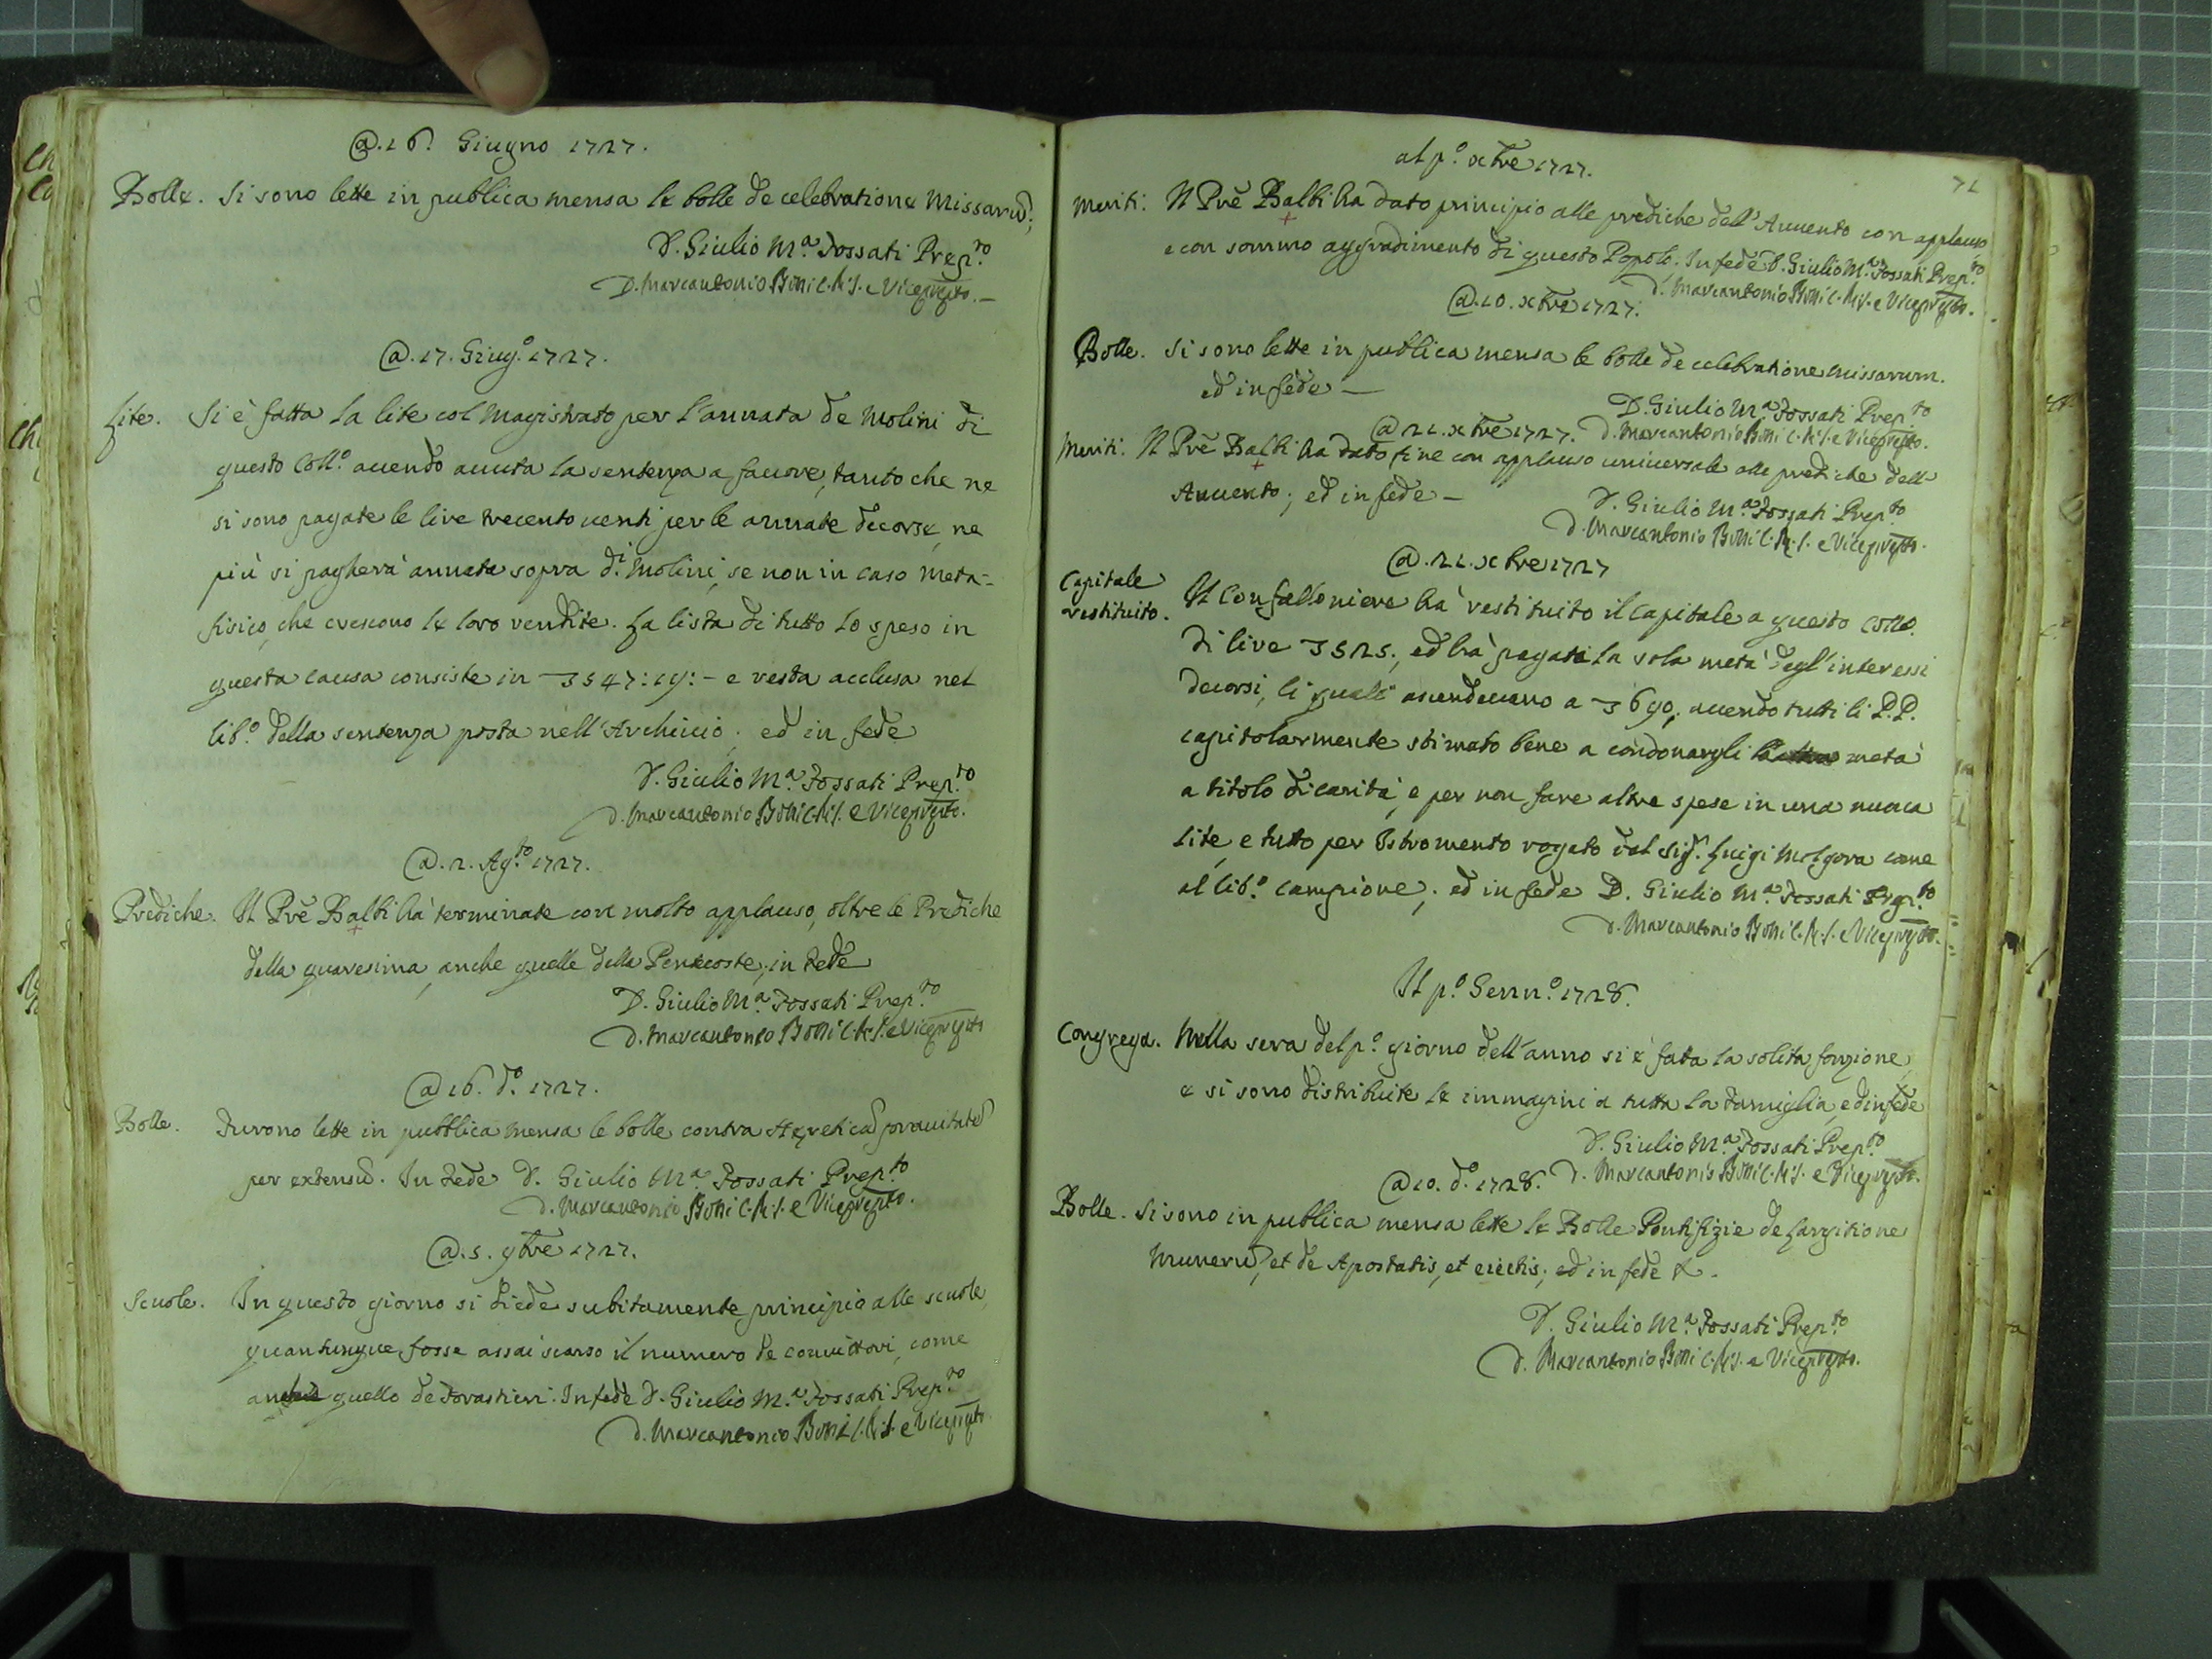 @. 16. Giugno 1727.
Bolle. Si sono lette in publica mensa le bolle de celebratione Missarũ;
D. Giulio M.ª Fossati Prep.to
D. Marcantonio Boni C.R.S. e Viceprepto.
@. 17. Giug.o 1727.
Lite. Si è fatta la lite col Magistrato per l'annata de Molini di
questo Coll.o auendo auuta la sentenza a fauore, tanto che ne
si sono pagate le lire trecento uenti per le annate decorse, ne
più si pagherà annata sopra d.i Molini, se non in caso meta=
fisico, che crescono le loro rendite. La lista di tutto lo speso in
questa causa consiste in 3547:19:- e resta acclusa nel
lib.o della sentenza posta nell'Archiuio; ed in fede
D. Giulio M.ª Fossati Prep.to
D. Marcantonio Boni C.R.S. e Viceprepto.
@. 2. Ag.to 1727.
Prediche. Il Prẽ Balbi hà terminate con molto applauso, oltre le Prediche
della quaresima, anche quelle della Pentecoste; in Fede
D. Giulio M.ª Fossati Prep.to
D. Marcantonio Boni C.R.S. e Viceprepto
@ 16. d.o 1727.
Bolle. Furono lette in pubblica mensa le bolle contra Hæreticã prauitatẽ
per extensũ. In Fede D. Giulio M.ª Fossati Prep.to
D. Marcantonio Boni C.R.S. e Viceprepto.
@. 5. 9bre 1727.
Scuole. In questo giorno si diede subitamente principio alle scuole,
quantunque fosse assai scarso il numero de conuittori, come
anche quello de Forastieri. In fede D. Giulio M.ª Fossati Prep.to
D. Marcantonio Boni C.R.S. e Viceprepto.
71
al p.o xbre 1727.
Meriti: Il Prẽ Balbi ha dato principio alle prediche dell'Auuento con applauso,
e con sommo aggradimento di questo Popolo. In fede D. Giulio M.ª Fossati Prep.to
D. Marcantonio Boni C.R.S. e Viceprepto.
@. 10. xbre 1727.
Bolle. Si sono lette in publica mensa le bolle de celebratione missarum.
ed in fede —
D. Giulio M.ª Fossati Prep.to
@ 21. xbre 1727. D. Marcantonio Boni C.R.S. e Viceprepto.
Meriti: Il Prẽ Balbi ha dato fine con applauso uniuersale alle prediche dell'
Auuento; ed in fede —
D. Giulio M.ª Fossati Prep.to
D. Marcantonio Boni C.R.S. e Viceprepto.
@. 21. xbre 1727
Capitale
restituito. Il Confaloniere hà restituito il capitale a questo Collo.
di lire 3525., ed hà pagata la sola metà degl'interessi
decorsi, li quali ascendeuano a 690, auendo tutti li P.P.
capitolarmente stimato bene a condonargli metà
a titolo di carità, e per non fare altre spese in una nuoua
lite, e tutto per Istromento rogato dal Sig.r Luigi Molgora come
al lib.o campione; ed in fede D. Giulio M.ª Fossati Prep.to
D. Marcantonio Boni C.R.S. e Viceprepto.
Il p.o Genn.o 1728.
Congrega. Nella sera del p.o giorno dell'anno si è fatta la solita fonzione,
e si sono distribuite le immagini a tutta la Famiglia, ed in fede
D. Giulio M.ª Fossati Prep.to
@ 10. d.o 1728. D. Marcantonio Boni C.R.S. e Viceprepto.
Bolle. Si sono in publica mensa lette le Bolle Pontifizie de Largitione
Munerũ, et de Apostatis, et eiectis; ed in fede &.
D. Giulio M.ª Fossati Prep.to
D. Marcantonio Boni C.R.S. e Viceprepto.